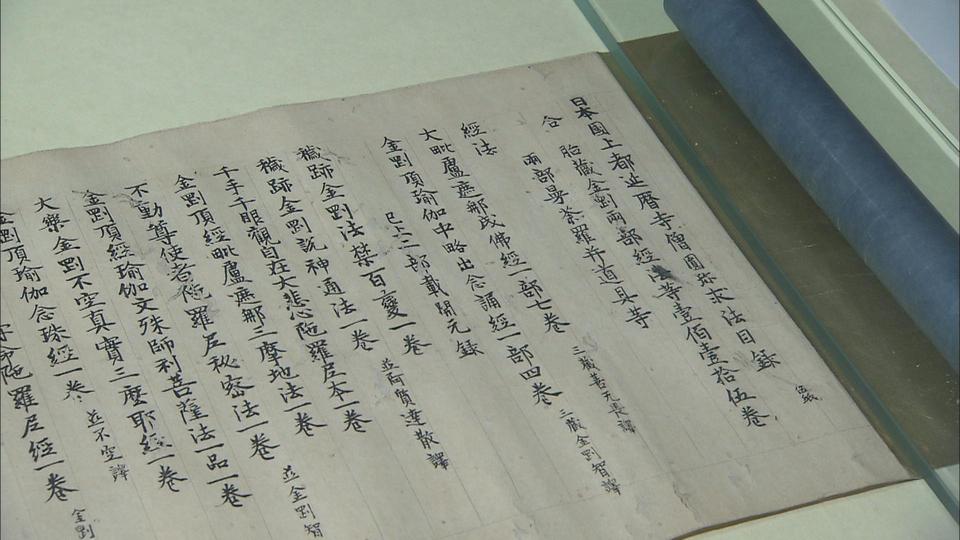 日本國上都延曆寺僧圓珎求法目錄
合 胎藏金剛兩部經法等壹佰壹拾伍卷
兩部曼荼羅并道具等
經法
大毗盧遮那成佛經一部七卷 三藏善无畏譯
金剛頂瑜伽中略出念誦經一部四卷 三藏金剛智譯
已上二部載開元錄
穢跡金剛法禁百變一卷
穢跡金剛說神通法一卷 並阿質達散譯
千手千眼觀自在大悲陁羅尼本一卷
金剛頂經毗盧遮那三摩地法一卷
不動尊使者陁羅尼秘密法一卷 並金剛智
金剛頂經瑜伽文殊師利菩薩法一品一卷
大樂金剛不空真實三麼耶經一卷
金剛頂瑜伽念珠經一卷 並不空譯
陁羅尼經一卷 金剛